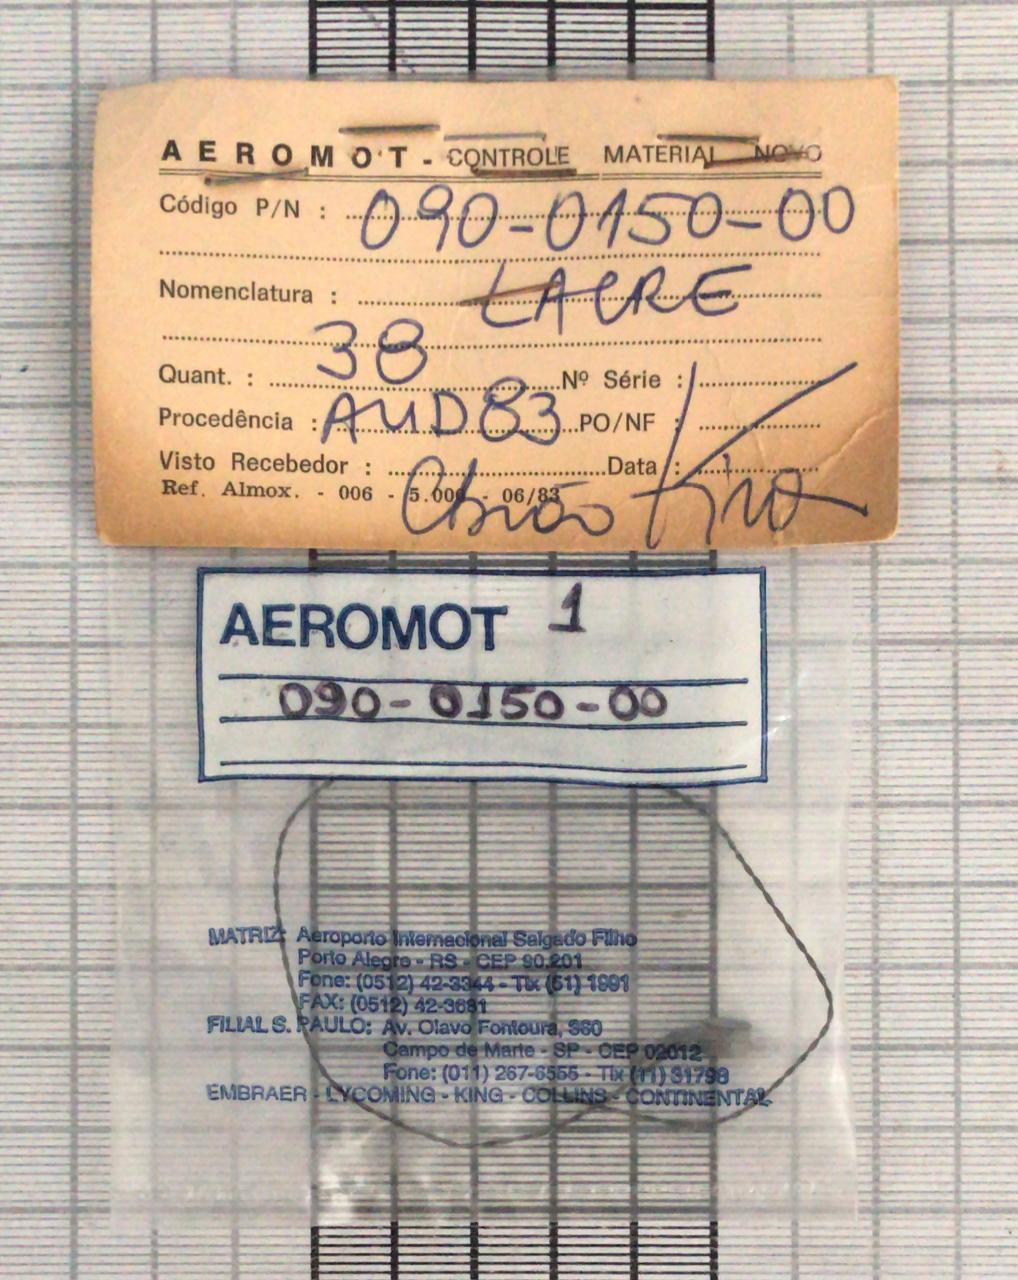 AEROMOT - CONTROLE MATERIAL NOVO
Código P/N : 090-0150-00
Nomenclatura : LACRE
Quant. : 38 Nº Série :
Procedência : AUD83 PO/NF :
Visto Recebedor : Data :
Ref. Almox. - 006 - 5.000 - 06/83
AEROMOT 1
090-0150-00
MATRIZ: Aeroporto Internacional Salgado Filho
Porto Alegre - RS - CEP 90.201
Fone: (0512) 42-3344 - Tlx (51) 1991
FAX: (0512) 42-3631
FILIAL S. PAULO: Av. Olavo Fontoura,
Campo de Marte - SP - CEP 02012
Fone: (011) 267-6555 - Tlx (11) 31798
EMBRAER - LYCOMING - KING - COLLINS - CONTINENTAL